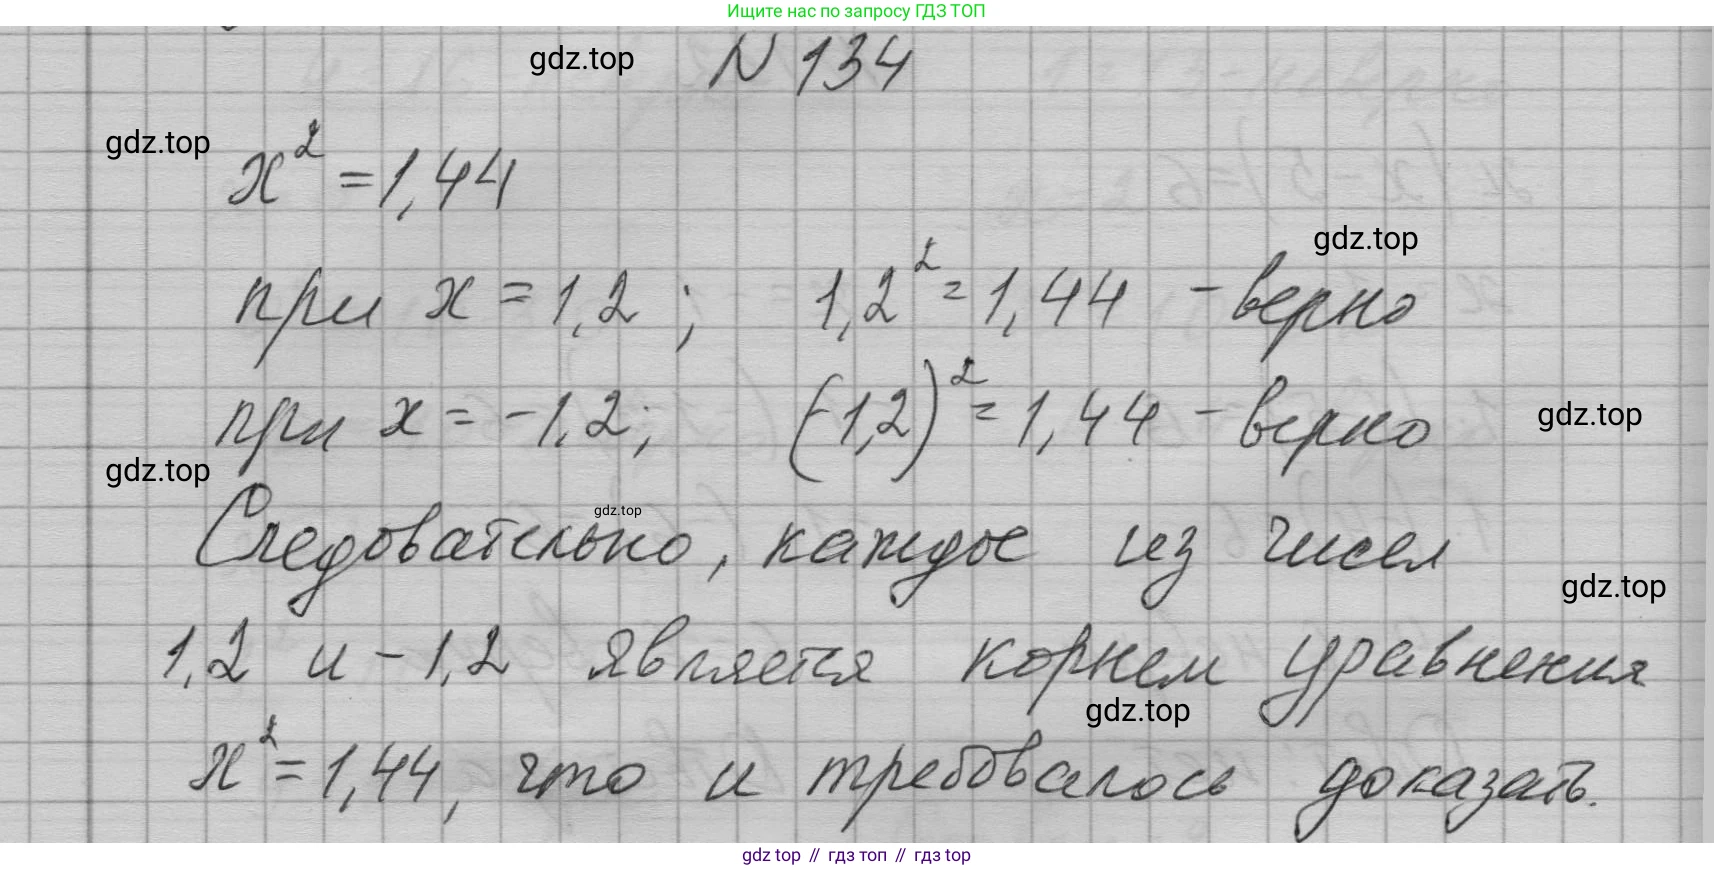 Ищите нас по запросу ГДЗ ТОП
N 134
gdz.top
gdz.top
x² = 1,44
gdz.top
при x = 1,2 ; 1,2² = 1,44 - верно
при x = -1,2; (-1,2)² = 1,44 - верно
gdz.top
gdz.top
gdz.top
Следовательно, каждое из чисел
gdz.top
1,2 и -1,2 является корнем уравнения
gdz.top
x² = 1,44, что и требовалось доказать.
gdz top // гдз топ // gdz.top